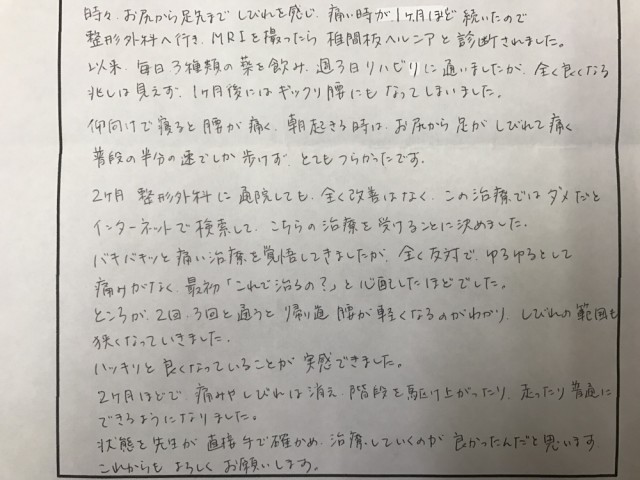 時々、お尻から足先までしびれを感じ、痛い時が1ヶ月ほど続いたので
整形外科へ行き、MRIを撮ったら椎間板ヘルニアと診断されました。
以来、毎日3種類の薬を飲み、週3日リハビリに通いましたが、全く良くなる
兆しは見えず、1ヶ月後にはギックリ腰にもなってしまいました。
仰向けで寝ると腰が痛く、朝起きる時は、お尻から足がしびれて痛く
普段の半分の速でしか歩けず、とてもつらかったです。
2ヶ月 整形外科に通院しても、全く改善はなく、この治療ではダメだと
インターネットで検索して、こちらの治療を受けることに決めました。
バキバキッと痛い治療を覚悟してきましたが、全く反対で、ゆるゆるとして
痛みがなく、最初「これで治るの?」と心配したほどでした。
ところが、2回、3回と通うと帰り道 腰が軽くなるのがわかり、しびれの範囲も
狭くなっていきました。
ハッキリと良くなっていることが実感できました。
2ヶ月ほどで、痛みやしびれは消え、階段を駆け上がったり、走ったり普通に
できるようになりました。
状態を先生が直接手で確かめ、治療していくのが良かったんだと思います。
これからもよろしくお願いします。